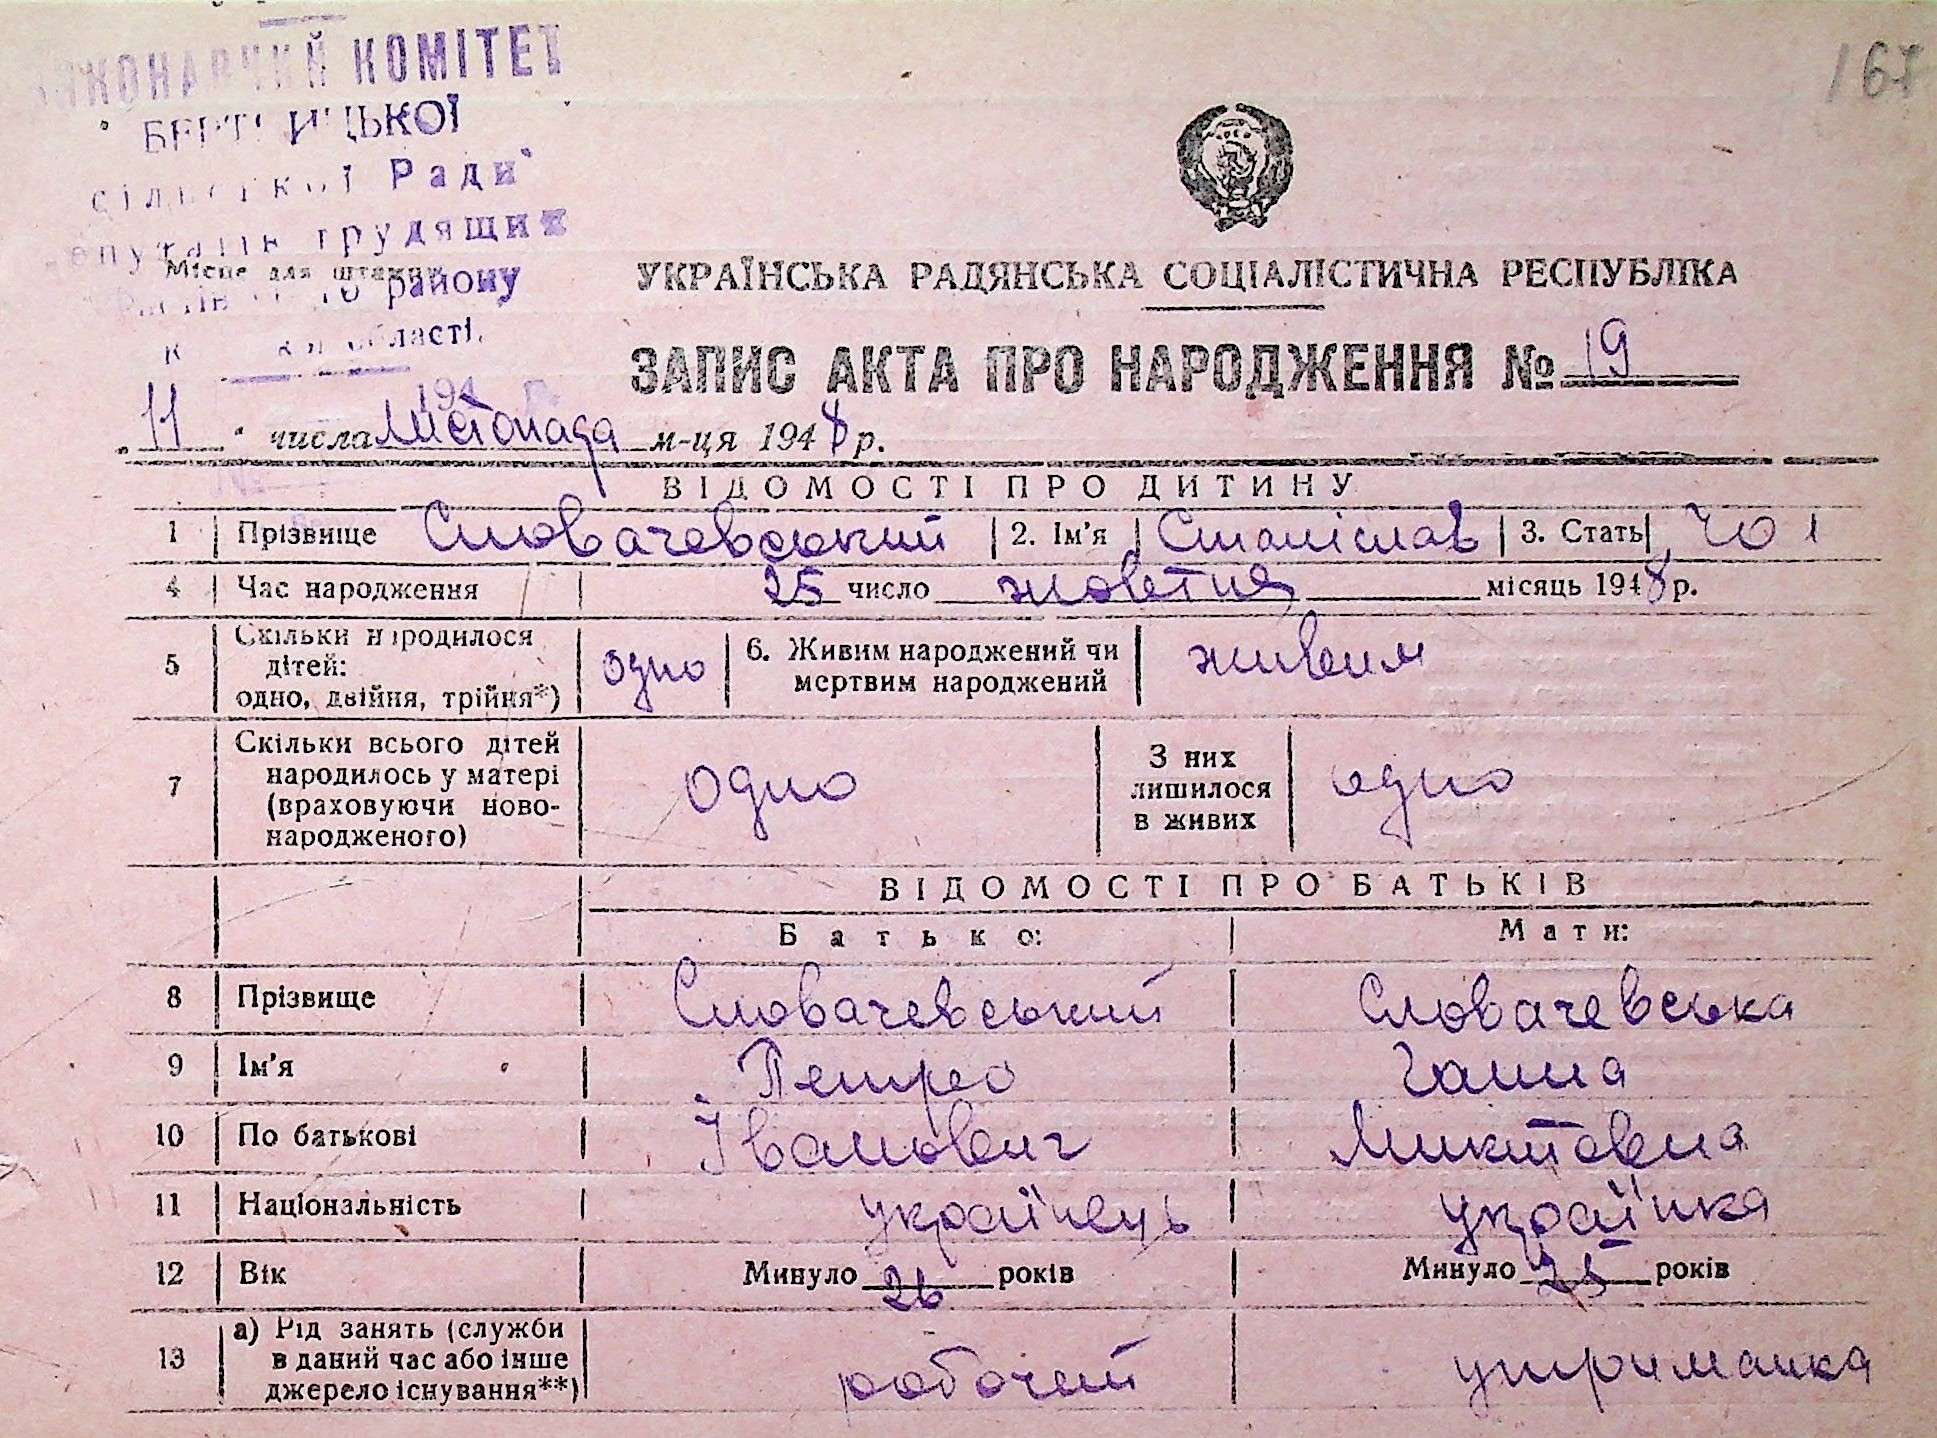 ВИКОНАВЧИЙ КОМІТЕТ
сільської Ради
депутатів трудящих
Місце для штампу
району
області.
194 р.
167
УКРАЇНСЬКА РАДЯНСЬКА СОЦІАЛІСТИЧНА РЕСПУБЛІКА
ЗАПИС АКТА ПРО НАРОДЖЕННЯ № 19
„11" числа Листопада м-ця 1948 р.
ВІДОМОСТІ ПРО ДИТИНУ
1 Прізвище Словачевський 2. Ім'я Станіслав 3. Стать чол
4 Час народження 25 число жовтня місяць 1948 р.
5 Скільки народилося дітей: одно, двійня, трійня*) одно 6. Живим народжений чи мертвим народжений живим
7 Скільки всього дітей народилось у матері (враховуючи новонародженого) одно З них лишилося в живих одно
ВІДОМОСТІ ПРО БАТЬКІВ
Батько: Мати:
8 Прізвище Словачевський Словачевська
9 Ім'я Петро Ганна
10 По батькові Іванович Микитовна
11 Національність українець українка
12 Вік Минуло 26 років Минуло 25 років
13 а) Рід занять (служби в даний час або інше джерело існування**) робочий утриманка